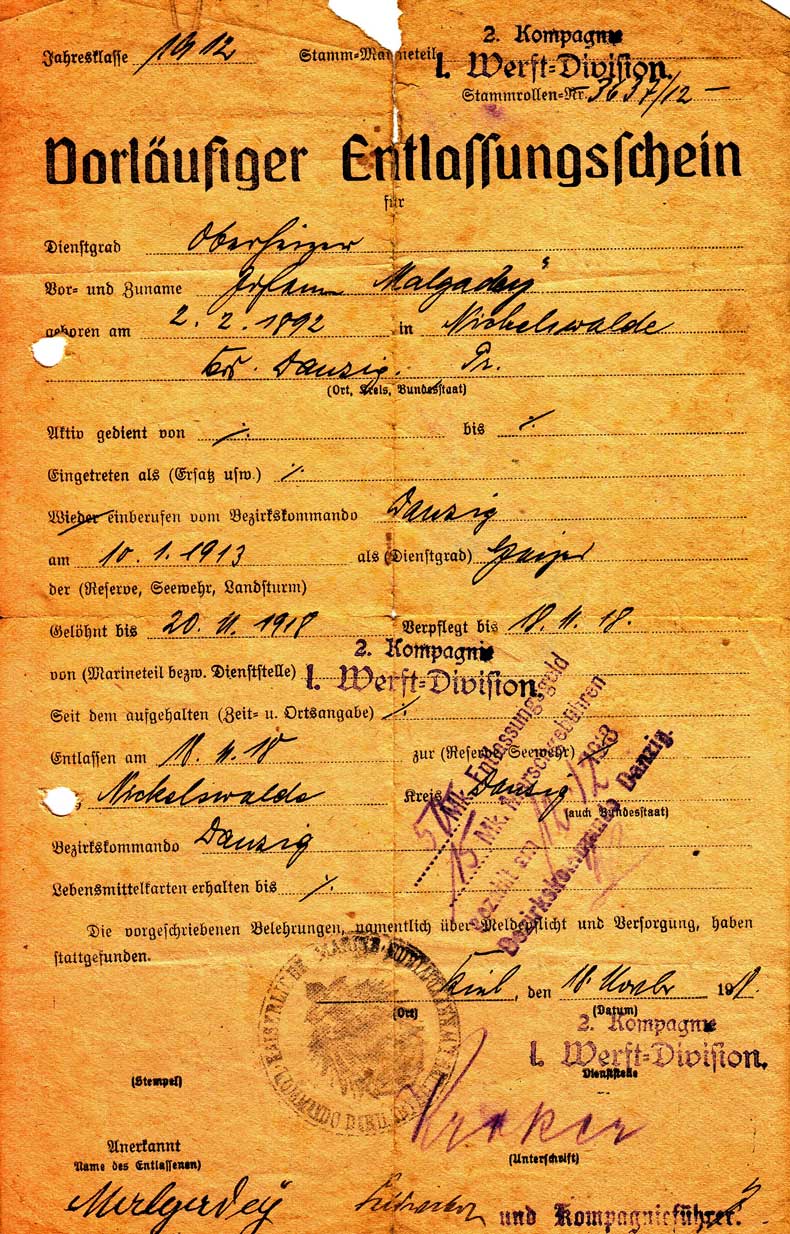 2. Kompagnie
Jahresklasse 1912 Stamm-Marineteil I. Werft-Division.
Stammrollen-Nr. 3637/12
Vorläufiger Entlassungsschein
für
Dienstgrad Oberheizer
Vor- und Zuname Johann Malgadey
geboren am 2. 2. 1892 in Nickelswalde
Krs. Danzig. Pr.
(Ort, Kreis, Bundesstaat)
Aktiv gedient von ./. bis ./.
Eingetreten als (Ersatz usw.) ./.
Wieder einberufen vom Bezirkskommando Danzig
am 10. 1. 1913 als (Dienstgrad) Heizer
der (Reserve, Seewehr, Landsturm)
Gelöhnt bis 20. 11. 1918 Verpflegt bis 18. 11. 18.
2. Kompagnie
von (Marineteil bezw. Dienststelle) I. Werft-Division.
Seit dem aufgehalten (Zeit- u. Ortsangabe) ./.
Entlassen am 18. 11. 18 zur (Reserve, Seewehr)
Nickelswalde Kreis Danzig
(auch Bundesstaat)
Bezirkskommando Danzig
Lebensmittelkarten erhalten bis ./.
50 Mk. Entlassungsgeld
15 Mk. Marschgebühren
bezahlt am 12/12 1918
Bezirkskommando Danzig.
Die vorgeschriebenen Belehrungen, namentlich über Meldepflicht und Versorgung, haben
stattgefunden.
KAISERLICHE MARINE
KOMMANDO DER I. WERFT
Kiel, den 18. Novbr 1918.
(Ort) (Datum)
2. Kompagnie
I. Werft-Division.
(Stempel) Dienststelle
Anerkannt
Name des Entlassenen) (Unterschrift)
Malgadey und Kompagnieführer.